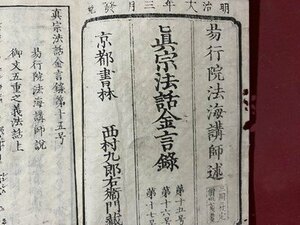 明治十六年三月發兌
易行院法海講師述
眞宗法話金言錄
第十五号
第十六号
第十七号
京都書林 西村九郎右衛門藏
眞宗法話金言錄第十五号
易行院法海講師說
御文五重之義法話上